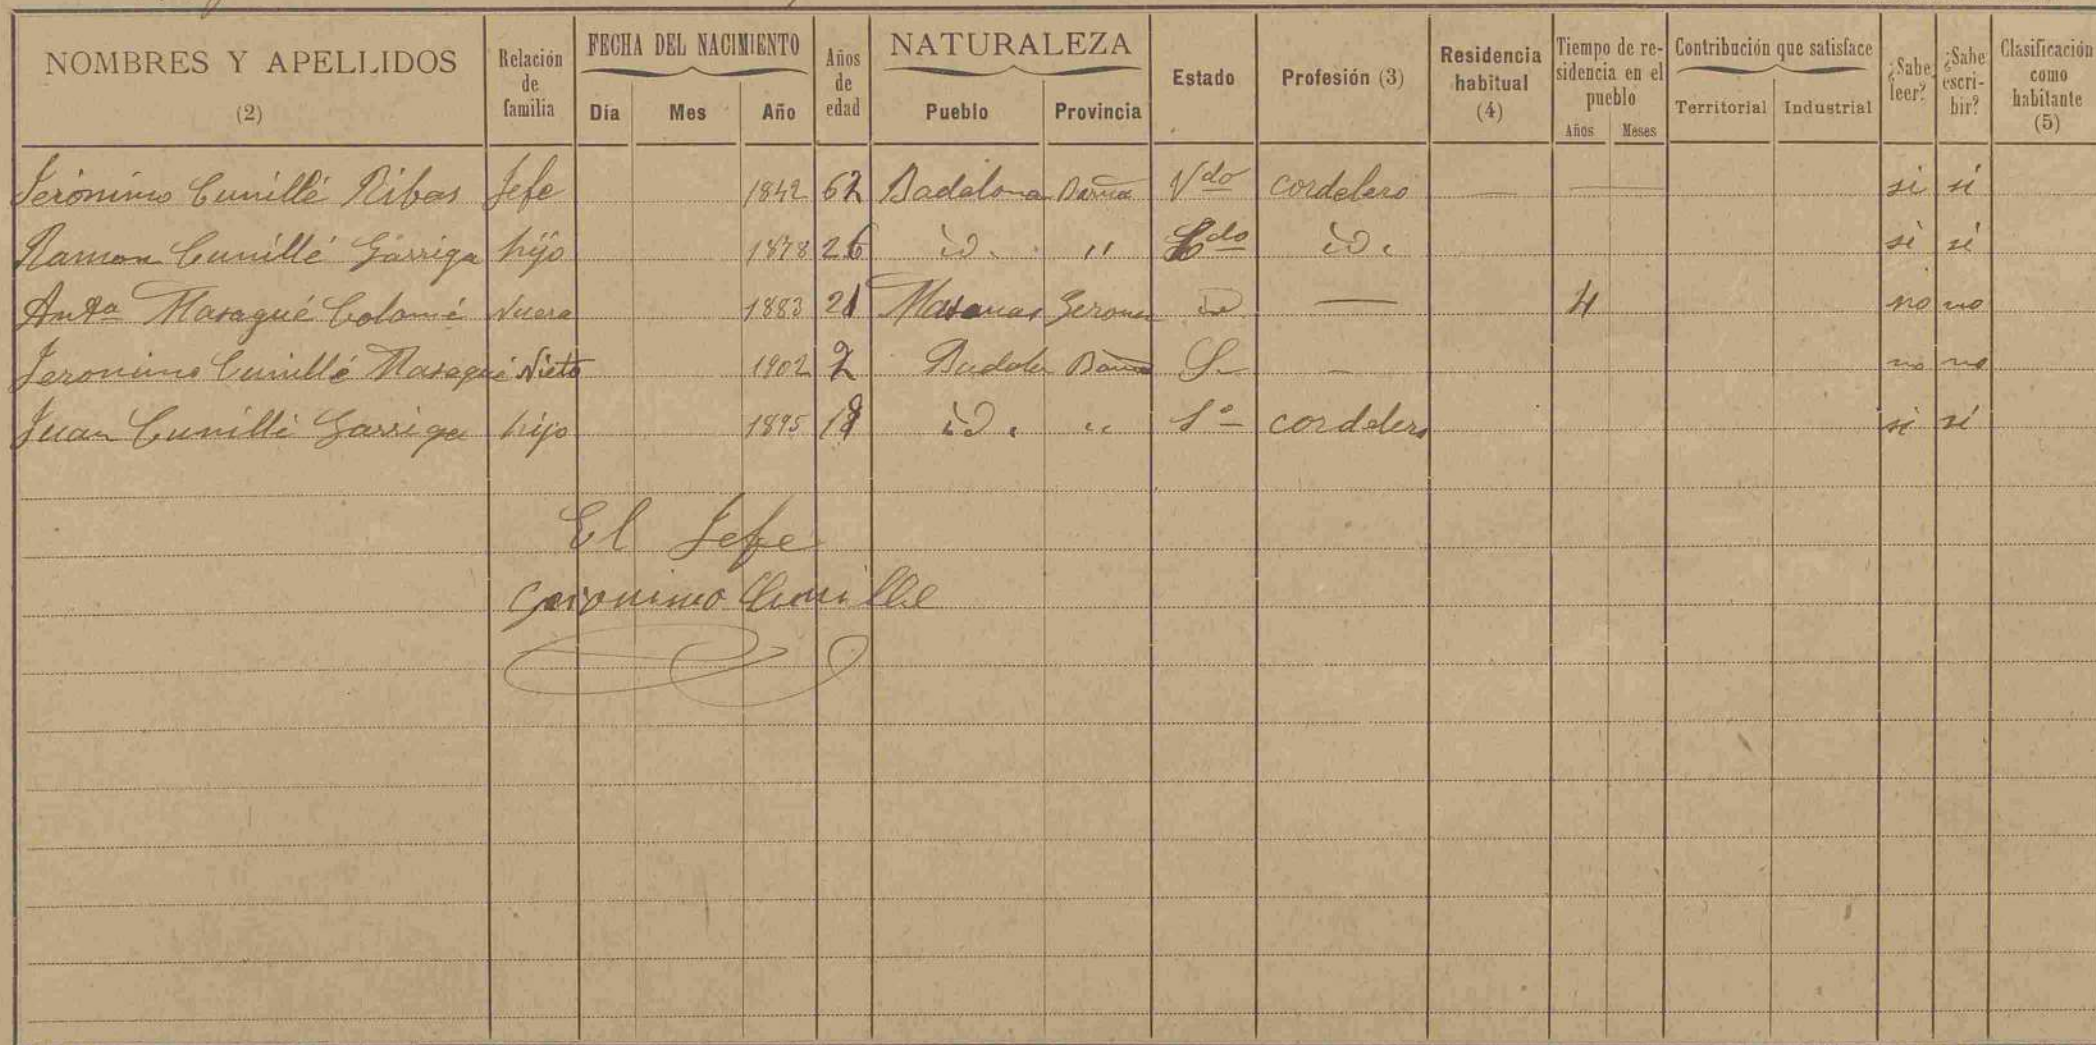 NOMBRES Y APELLIDOS (2) Relación de familia FECHA DEL NACIMIENTO Día Mes Año Años de edad NATURALEZA Pueblo Provincia Estado Profesión (3) Residencia habitual (4) Tiempo de residencia en el pueblo Años Meses Contribución que satisface Territorial Industrial ¿Sabe leer? ¿Sabe escribir? Clasificación como habitante (5)
Jerónimo Cunillé Ribas Jefe 1842 62 Badalona Barna Vdo cordelero — — si sí
Ramon Cunillé Garriga hijo 1878 26 id. " Cdo id. si sí
Anta Masagué Colomé Nuera 1883 21 Masanas Gerona id — 4 no no
Jeronimo Cunillé Masagué Nieto 1902 2 Badala Barna S — no no
Juan Cunillé Garriga hijo 1895 id. " So cordelero si sí
El Jefe
Geronimo Cunille